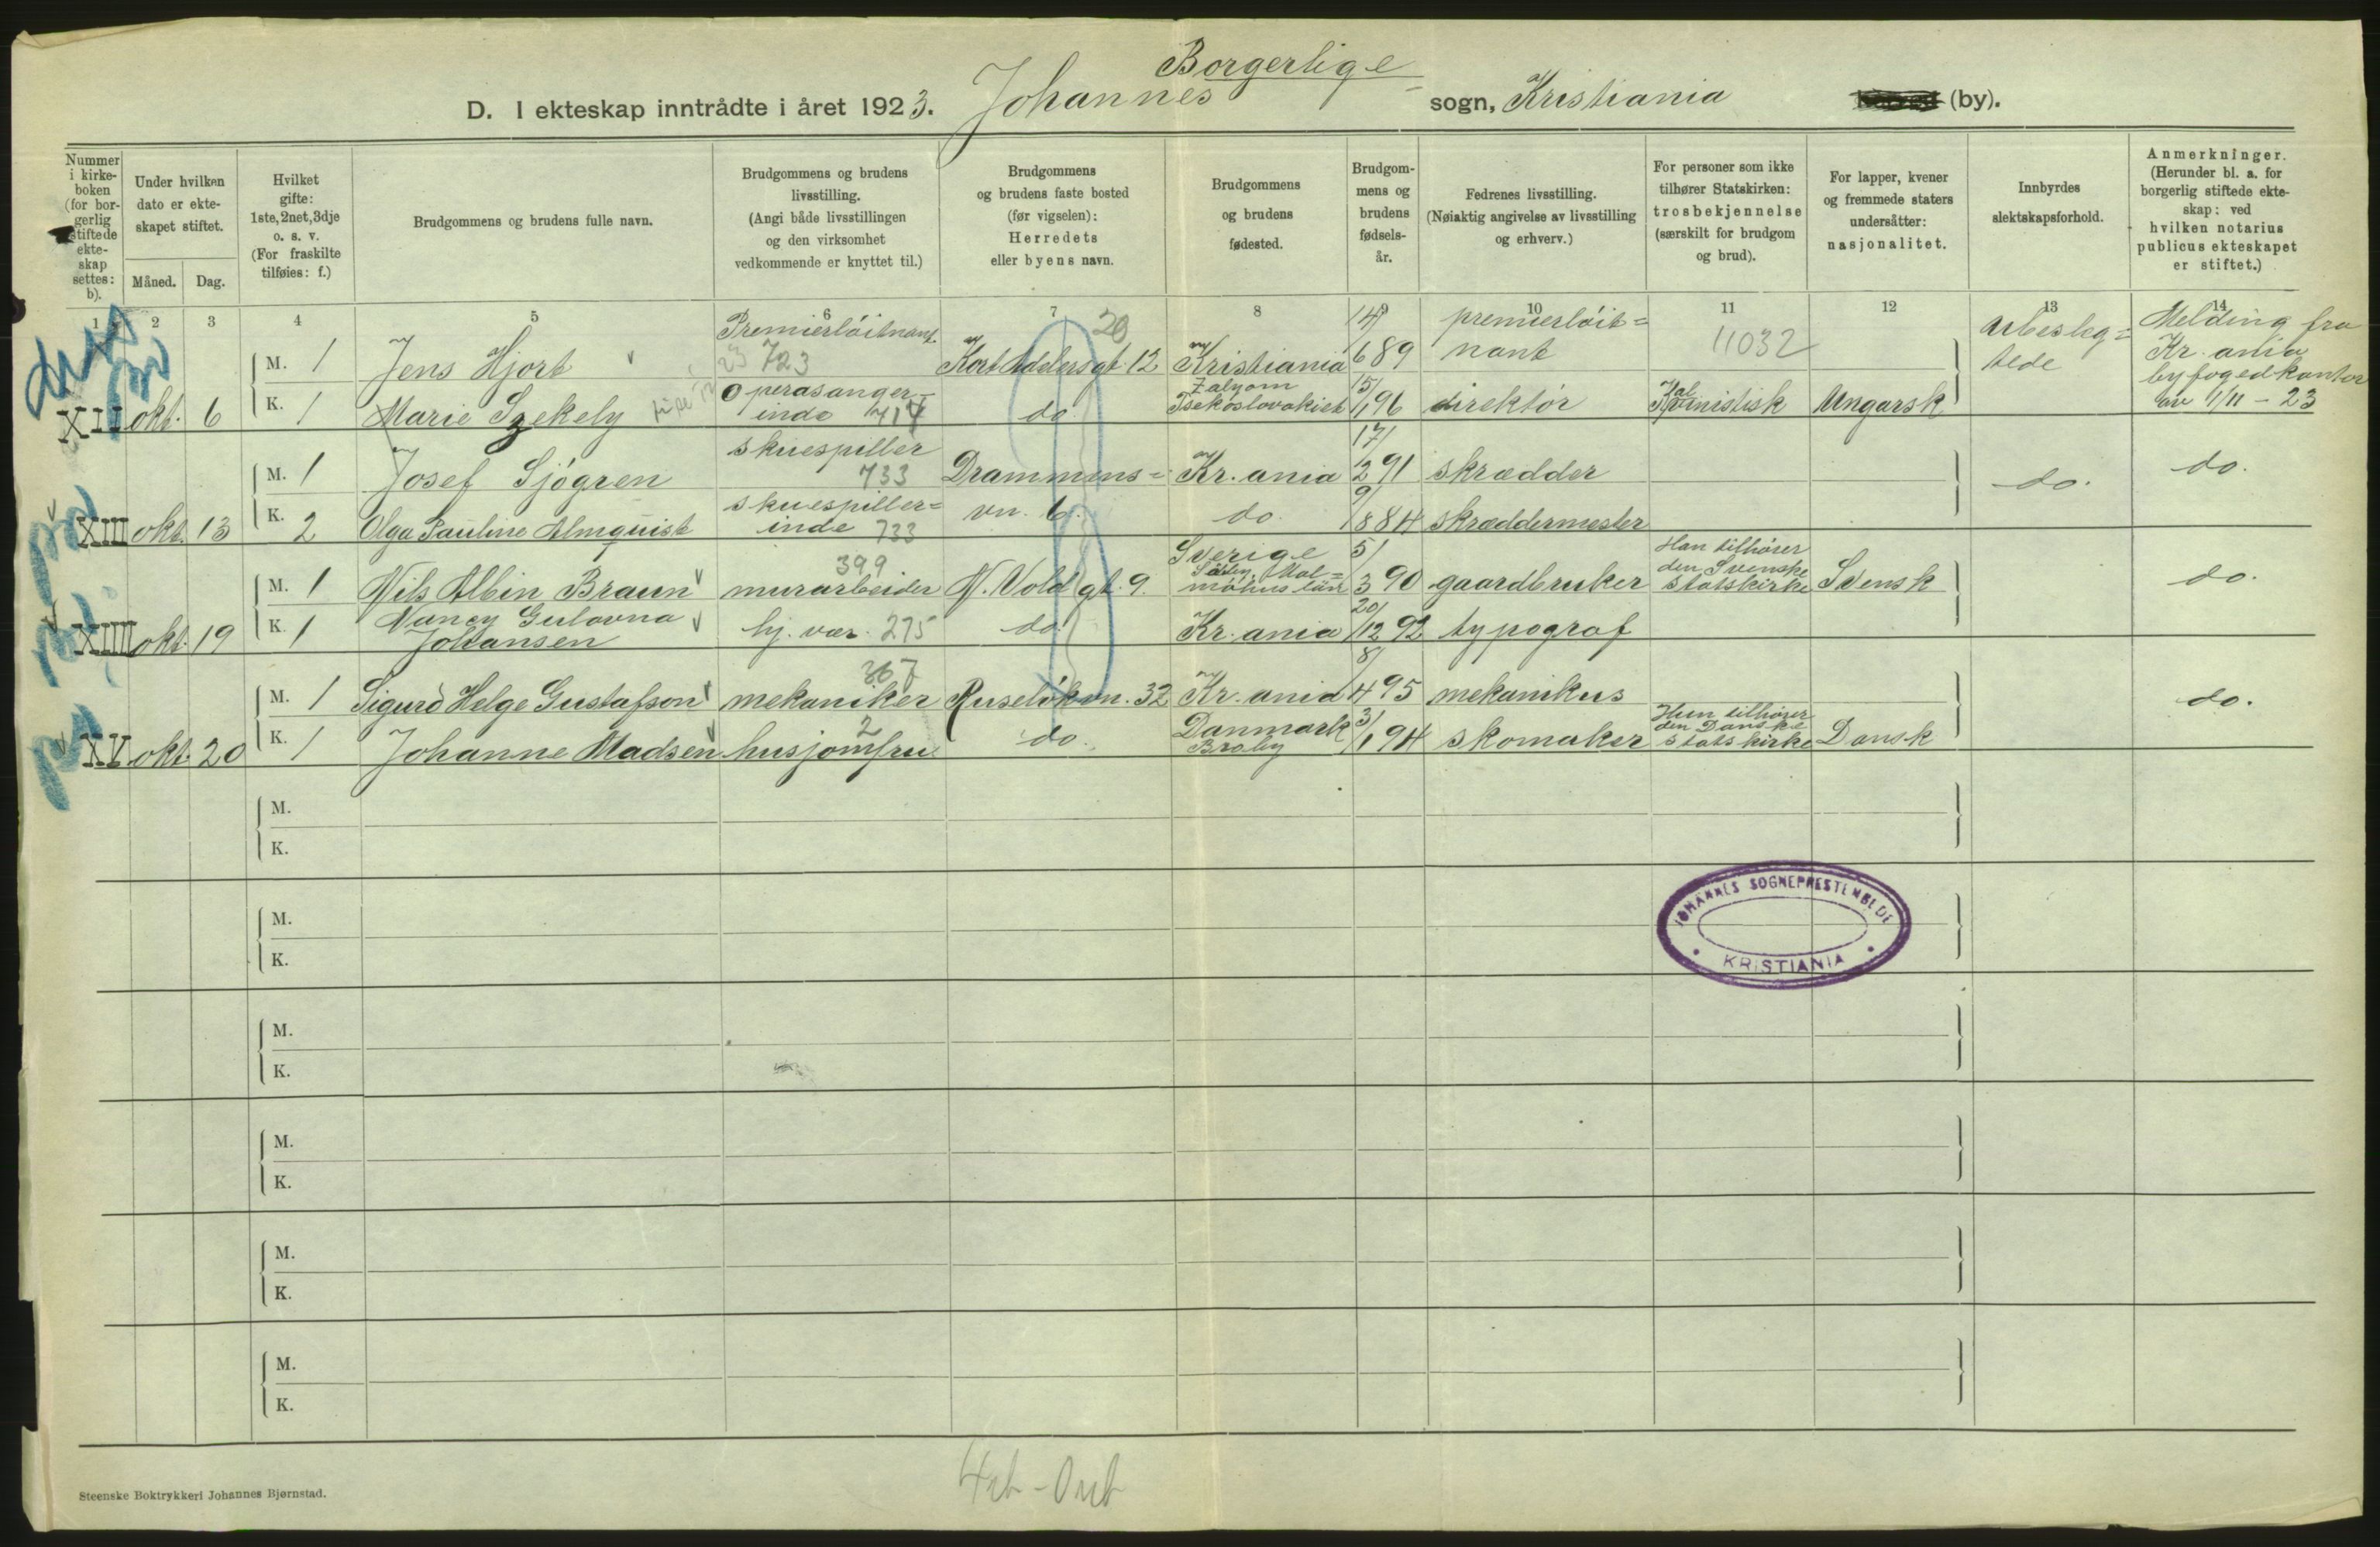 Borgerlige
D. I ekteskap inntrådte i året 1923. Johannes sogn, Kristiania (by).
Nummer i kirkeboken (for borgerlig stiftede ekteskap settes: b).
Under hvilken dato er ekteskapet stiftet.
Måned. Dag.
Hvilket gifte: 1ste, 2net, 3dje o. s. v. (For fraskilte tilføies: f.)
Brudgommens og brudens fulle navn.
Brudgommens og brudens livsstilling. (Angi både livsstillingen og den virksomhet vedkommende er knyttet til.)
Brudgommens og brudens faste bosted (før vigselen): Herredets eller byens navn.
Brudgommens og brudens fødested.
Brudgommens og brudens fødselsår.
Fedrenes livsstilling. (Nøiaktig angivelse av livsstilling og erhverv.)
For personer som ikke tilhører Statskirken: trosbekjennelse (særskilt for brudgom og brud).
For lapper, kvener og fremmede staters undersåtter: nasjonalitet.
Innbyrdes slektskapsforhold.
Anmerkninger. (Herunder bl. a. for borgerlig stiftede ekteskap: ved hvilken notarius publicus ekteskapet er stiftet.)
1 2 3 4 5 6 7 8 9 10 11 12 13 14
XII okt. 6
M. 1 Jens Hjort Premierløitnant. 723 Kort Adelersgt. 12 20 Kristiania 14/6 89 premierløit=nant 11032 Ubesleg=tede Melding fra Kr.ania byfogedkontor av 1/11 - 23
K. 1 Marie Szekely Operasanger=inde 714 do. Zalyom Tsekoslovakiet 15/1 96 direktör Kalvinistisk Ungarsk
XIII okt. 13
M. 1 Josef Sjögren skuespiller 733 Drammens=vn. 6. Kr.ania 17/2 91 skrædder do. do.
K. 2 Olga Pauline Almquist skuespiller=inde 733 do. 9/8 84 skræddermester
XIIII okt. 19
M. 1 Nils Albin Braun 399 murarbeider N. Vold gt. 9. Sverige Malmöhus län 5/3 90 gaardbruker Han tilhører den Svenske statskirke Svensk do.
K. 1 Nancy Gulovna Johansen hj. vær. 275 do. Kr.ania 20/12 92 typograf
XV okt. 20
M. 1 Sigurd Helge Gustafson 367 mekaniker Ruseløkvn. 32 Kr.ania 8/4 95 mekanikus do.
K. 1 Johanne Madsen husjomfru 2 do. Danmark Broby 3/1 94 skomaker Hun tilhører den Danske statskirke Dansk
M.
K.
M.
K.
JOHANNES SOGNEPRESTEMBEDE
KRISTIANIA
M.
K.
M.
K.
M.
K.
M.
K.
Steenske Boktrykkeri Johannes Bjørnstad.